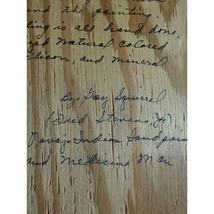 and the paintin
ting is all hand done,
zed natural colored
ilicon, and mineral
By: Grey Squirrel
(Fred Stevens, Jr)
Navajo Indian Sandpain
and Medicine Man